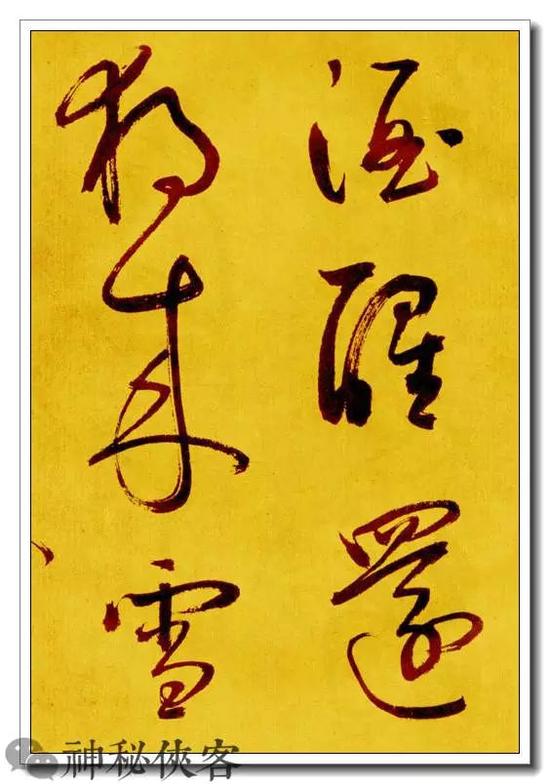 酒醒還
獨来雪
神秘俠客